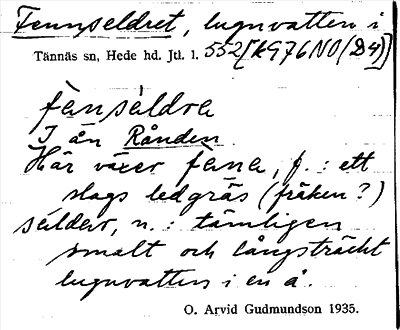 Fennseldret, lugnvatten i
Tännäs sn, Hede hd. Jtl. l. 552[kG76NO(D4)]
fänsäldra
I ån Rånden.
Här växer fäna, f. : ett
slags ledgräs (fräken?)
säldær, n. : tämligen
smalt och långsträckt
lugnvatten i en å.
O. Arvid Gudmundson 1935.